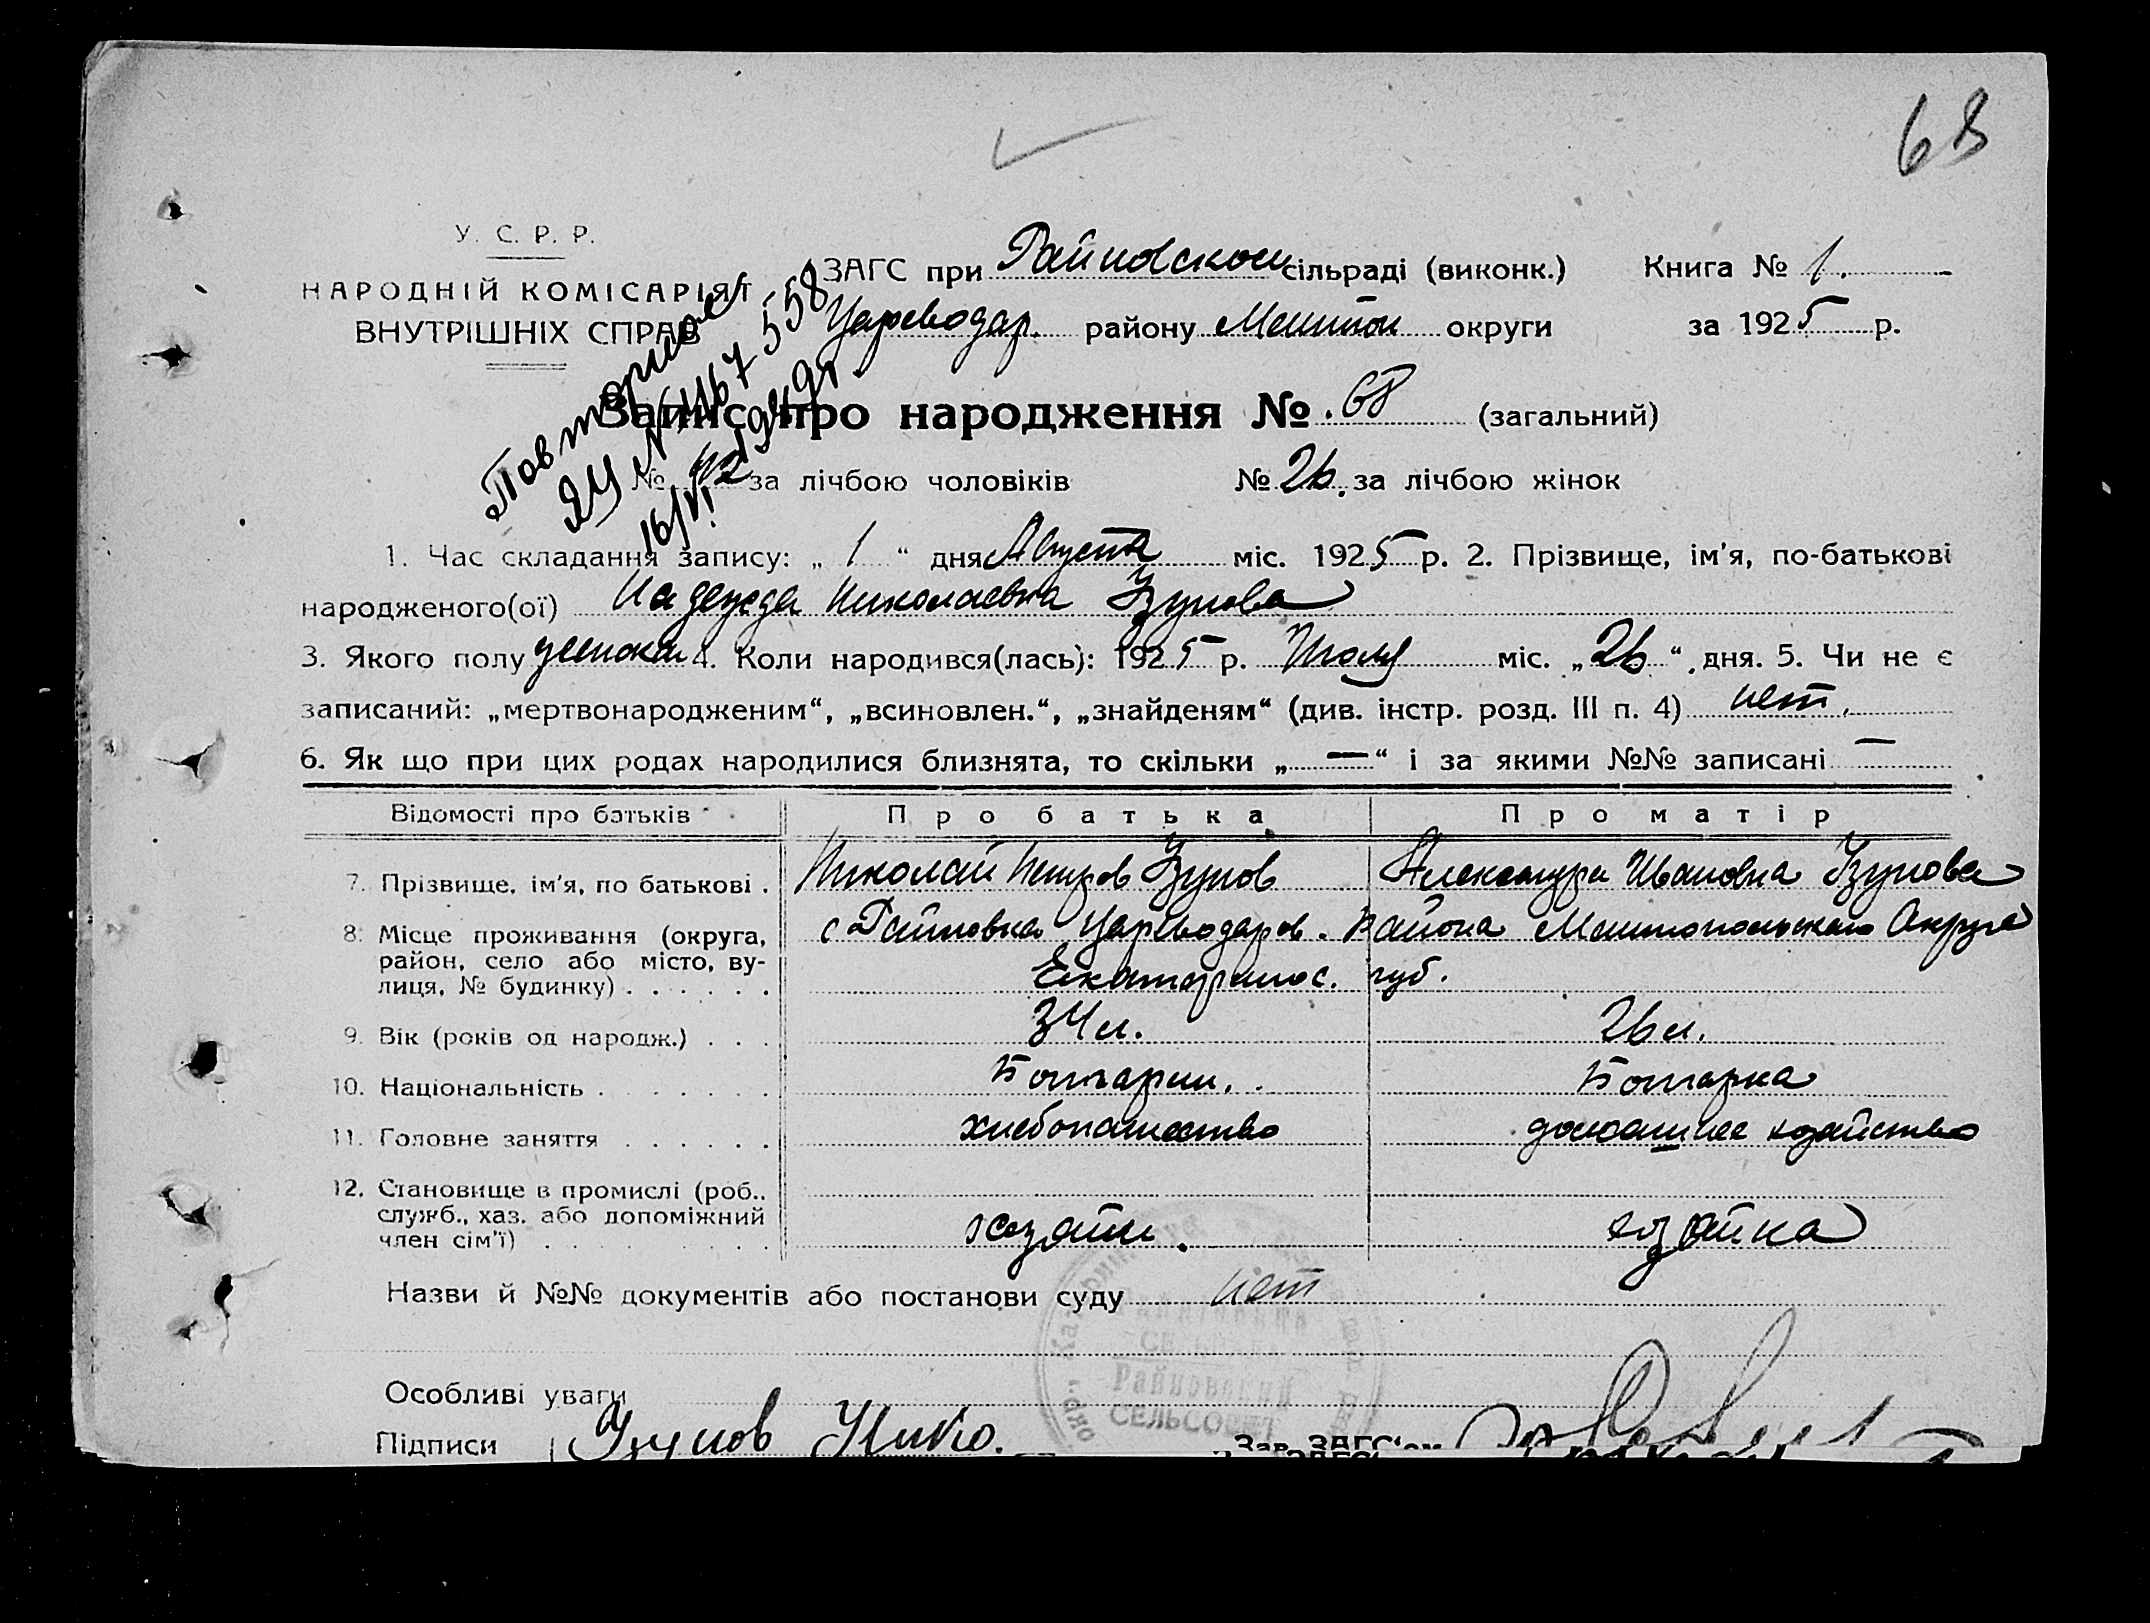 68
У. С. Р. Р.
НАРОДНІЙ КОМІСАРІЯТ
ВНУТРІШНІХ СПРАВ
ЗАГС при Райновском сільраді (виконк.) Книга № 1.
Цареводар. району Мелитоп округи за 1925 р.
Повторное
ЯЦ № 4167558
16/VI 1949г.
Запис про народження № 68 (загальний)
№ 42 за лічбою чоловіків № 26. за лічбою жінок
1. Час складання запису: „ 1 “ дня Августа міс. 1925 р. 2. Прізвище, ім'я, по-батькові
народженого(ої) Надежда Николаевна Узунова
3. Якого полу женска 4. Коли народився(лась): 1925 р. Июля міс. „ 26 “ дня. 5. Чи не є
записаний: „мертвонародженим“, „всиновлен.“, „знайденям“ (див. інстр. розд. III п. 4) нет.
6. Як що при цих родах народилися близнята, то скільки „ — “ і за якими №№ записані —
Відомості про батьків Про батька Про матір
7. Прізвище, ім'я, по батькові . Николай Петров Узунов Александра Ивановна Узунова
8. Місце проживання (округа, район, село або місто, ву-
лиця, № будинку) . . . . . . с Райновка Цареводаров. Района Мелитопольского Округа
Екатеринос. губ.
9. Вік (років од народж.) . . . 34 л. 26 л.
10. Національність . . . . . . . Болгарин. Болгарка
11. Головне заняття . . . . . . хлебопашество домашнее хозяйство
12. Становище в промислі (роб.,
служб., хаз. або допоміжний
член сім'ї) . . . . . . . . . хозяин. хозяйка
Назви й №№ документів або постанови суду нет
Райновский
СЕЛЬСОВЕТ
Особливі уваги
Підписи Узунов Нико. Зав. ЗАГС'ом